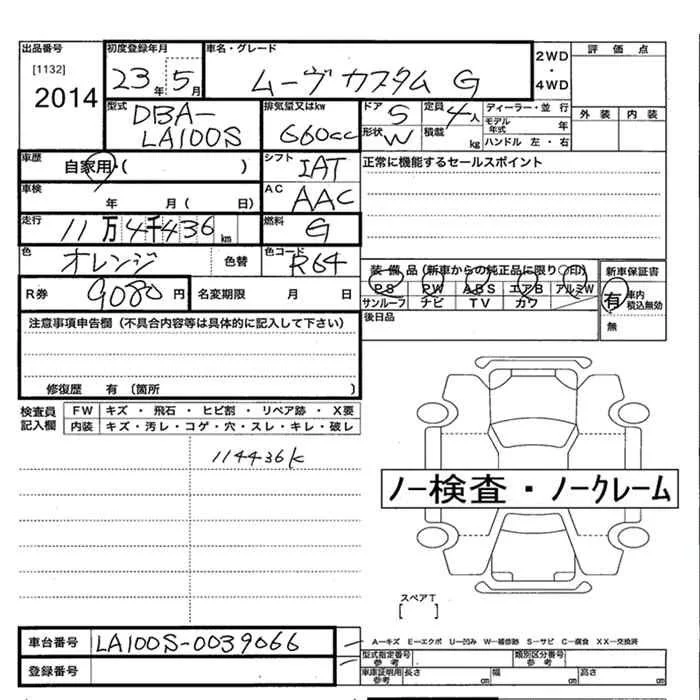 出品番号 初度登録年月 車名・グレード 2WD・4WD 評価点
[1132] 2014 23年5月 ムーヴ カスタム G
型式 DBA-LA100S 排気量又はkw 660cc ドア 5 定員 4人 ディーラー・並 行 外装 内装
形状 W 積載 kg モデル年式 年 ハンドル 左・右
車歴 自家用・( ) シフト IAT 正常に機能するセールスポイント
車検 年 月( 日) AC AAC
走行 11万4千436km 燃料 G
色 オレンジ 色替 色コード R64 装備品(新車からの純正品に限り○印) 新車保証書
R券 9080円 名変期限 月 日 PS PW ABS エアB アルミW 有 車内積込無効
サンルーフ ナビ TV カワ 無
注意事項申告欄(不具合内容等は具体的に記入して下さい) 後日品
修復歴 有 〔箇所 〕
検査員記入欄 FW キズ・飛石・ヒビ割・リペア跡・X要
内装 キズ・汚レ・コゲ・穴・スレ・キレ・破レ
114436k
ノー検査・ノークレーム
スペアT
[ ]
車台番号 LA100S-0039066 A−キズ E−エクボ U−凹み W−補修跡 S−サビ C−腐食 XX−交換済
登録番号 型式指定番号 参考 類別区分番号 参考
車庫証明用 参考 長さ cm 幅 cm 高さ cm